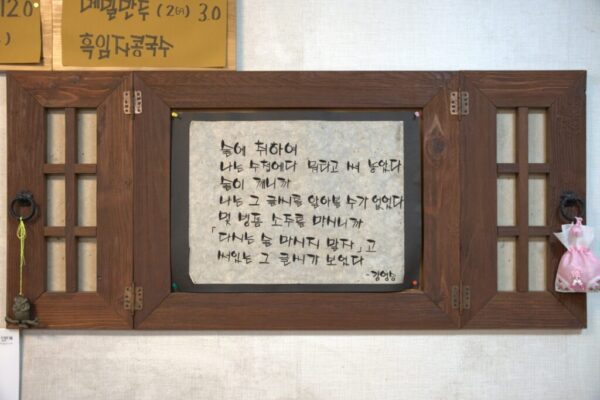 120
메밀만두 (2인) 3.0
흑임자콩국수
술에 취하여
나는 수첩에다 뭐라고 써 놓았다
술이 깨니까
나는 그 글씨를 알아볼 수가 없었다
몇 병쯤 소주를 마시니까
「다시는 술 마시지 말자」고
써있는 그 글씨가 보였다
-김영승